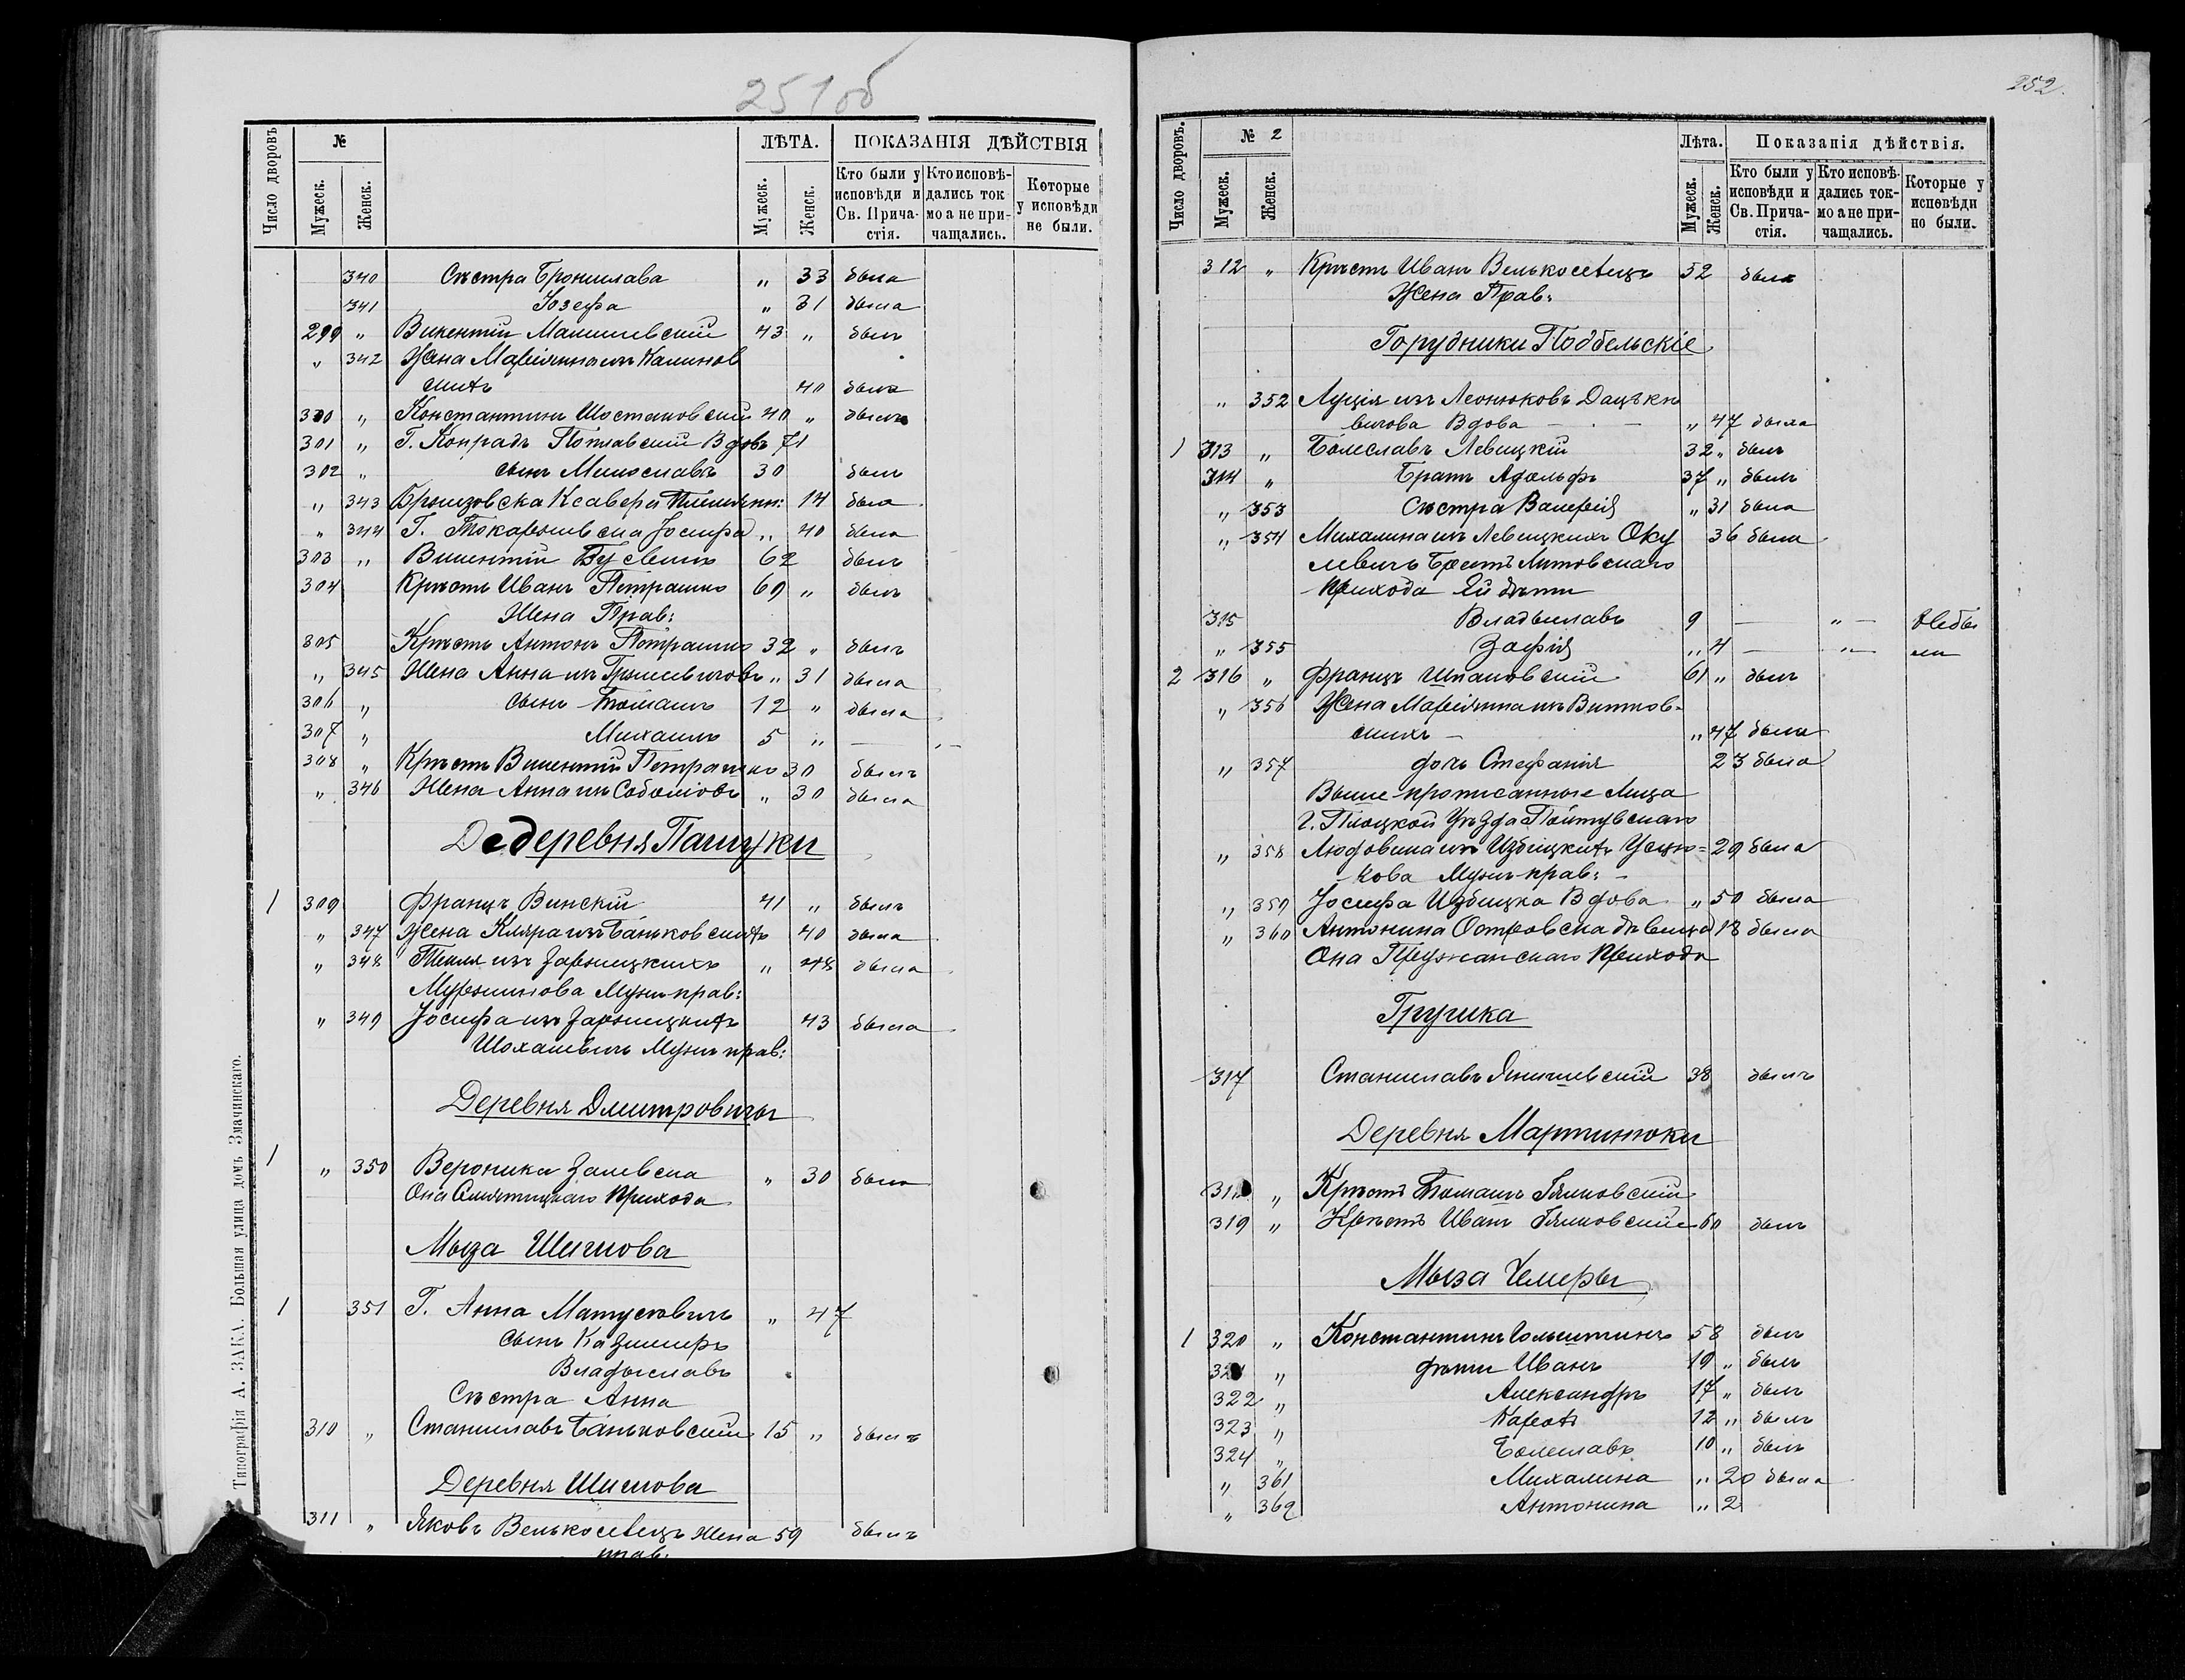 251об
Число дворовъ
№
Мужеск.
Женск.
ЛѢТА.
Мужеск.
Женск.
ПОКАЗАНІЯ ДѢЙСТВІЯ
Кто были у исповѣди и Св. Прича-стія.
Кто исповѣ-дались ток мо а не при-чащались.
Которые у исповѣди не были.
340 Сѣстра Брониславa " 33 была
341 Юзефа " 31 была
299 " Викентій Малишевскій 43 " былъ
" 342 Жена Маріянна изъ Калинов
скихъ 40 была
300 " Константинъ Шостаковскій 40 " былъ
301 " Г. Конрадъ Вдовъ 71
302 " сынъ 30 былъ
" 343 Ксавера 14 была
" 344 Г. Токаржевска Іосифа " 40 была
303 " Викентій 62 былъ
304 Крѣстъ Иванъ Петрашко 69 " былъ
Жена Прав:
305 Крѣстъ Антонъ Петрашко 32 " былъ
" 345 Жена Анна изъ " 31 была
306 " сынъ Томашъ 12 " была
307 " Михаилъ 5 " — "-
308 " Крѣстъ Викентій Петрашко 30 былъ
" 346 Жена Анна изъ " 30 была
Дедеревня Пашуки
1 309 Францъ Винскій 41 " былъ
" 347 Жена Кляра изъ Баньковскихъ 40 была
" 348 Текля изъ Заржицкихъ " 48 была
Мужъ прав:
" 349 Іосифа изъ Заржицкихъ 43 была
Мужъ прав:
Деревня Дмитровичы
1 " 350 Вероника Залевска " 30 была
Она Прихода
Мыза Шишова
1 351 Г. Анна Матусевичъ " 47
сынъ Казимиръ
Владыславъ
Сѣстра Анна
310 " Станиславъ Баньковскій 15 " былъ
Деревня Шишова
311 " Яковъ Велькоселецъ жена 59 былъ
прав:
Типографія А. ЗАКА. Большая улица домъ Значинскаго.
252.
Число дворовъ.
№ 2
Мужеск.
Женск.
Лѣта.
Мужеск.
Женск.
Показанія дѣйствія.
Кто были у исповѣди и Св. Прича-стія.
Кто исповѣ-дались ток-мо а не при-чащались.
Которые у исповѣди но были.
312 " Крѣстъ Иванъ Велькоселецъ 52 была
Жена Прав:
Горудники Подбельскіе
" 352 Луція изъ Леонюковъ Дацьке
вичова Вдова " 47 была
1 313 " Болеславъ Левицкій 32 " былъ
314 " Братъ Адольфъ 37 " былъ
" 353 Сѣстра Валерія " 31 была
" 354 Михалина изъ Левицкихъ Оку
левичъ Брестъ Литовскаго 36 была
прихода Ей дѣти
315 Владыславъ 9 — " — небы
" 355 Зафія " 4 — " — ли
2 316 " Францъ 61 " былъ
" 356 Жена Маріянна изъ Витков-
скихъ — " 47 была
" 357 дочь Стефанія 23 была
Выше прописанные Лица
г. Плоцкой Уѣзда Пултускаго
" 358 Людовика изъ Избицкихъ Уецю= 29 была
кова Мужъ прав: -
" 359 Іосифа Избицка Вдова " 50 была
" 360 Антонина Островска дѣвица 18 была
Она Пружанскаго Прихода
Грушка
317 Станиславъ 38 былъ
Деревня Мартинюки
" Крѣстъ Томашъ Гялковскій
319 " Крѣстъ Иванъ Гялковскій 60 былъ
Мыза Чемеры
1 320 " Константинъ Гольштинъ 58 былъ
321 " дѣти Иванъ 19 " былъ
322 " Александръ 17 " былъ
323 " Кароль 12 " былъ
324 " Болеславъ 10 " былъ
" 361 Михалина " 20 была
" 362 Антонина " 2